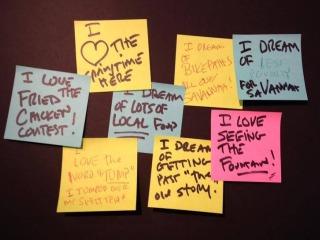 I
♡ THE
ANYTIME
HERE
I DREAM
OF
BIKEPATHS
ALL OVER
SAVANNAH!
I DREAM
OF LESS
POVERTY
FOR
SAVANNAH
I LOVE
FRIED
THE
CHICKEN
CONTEST!
I DREAM
OF LOTS OF
LOCAL FOOD
I LOVE
SEEING
THE
FOUNTAIN!
I
LOVE THE
WORD "JUMP"
I
I DREAM
OF
GETTING
PAST "THE
OLD STORY.